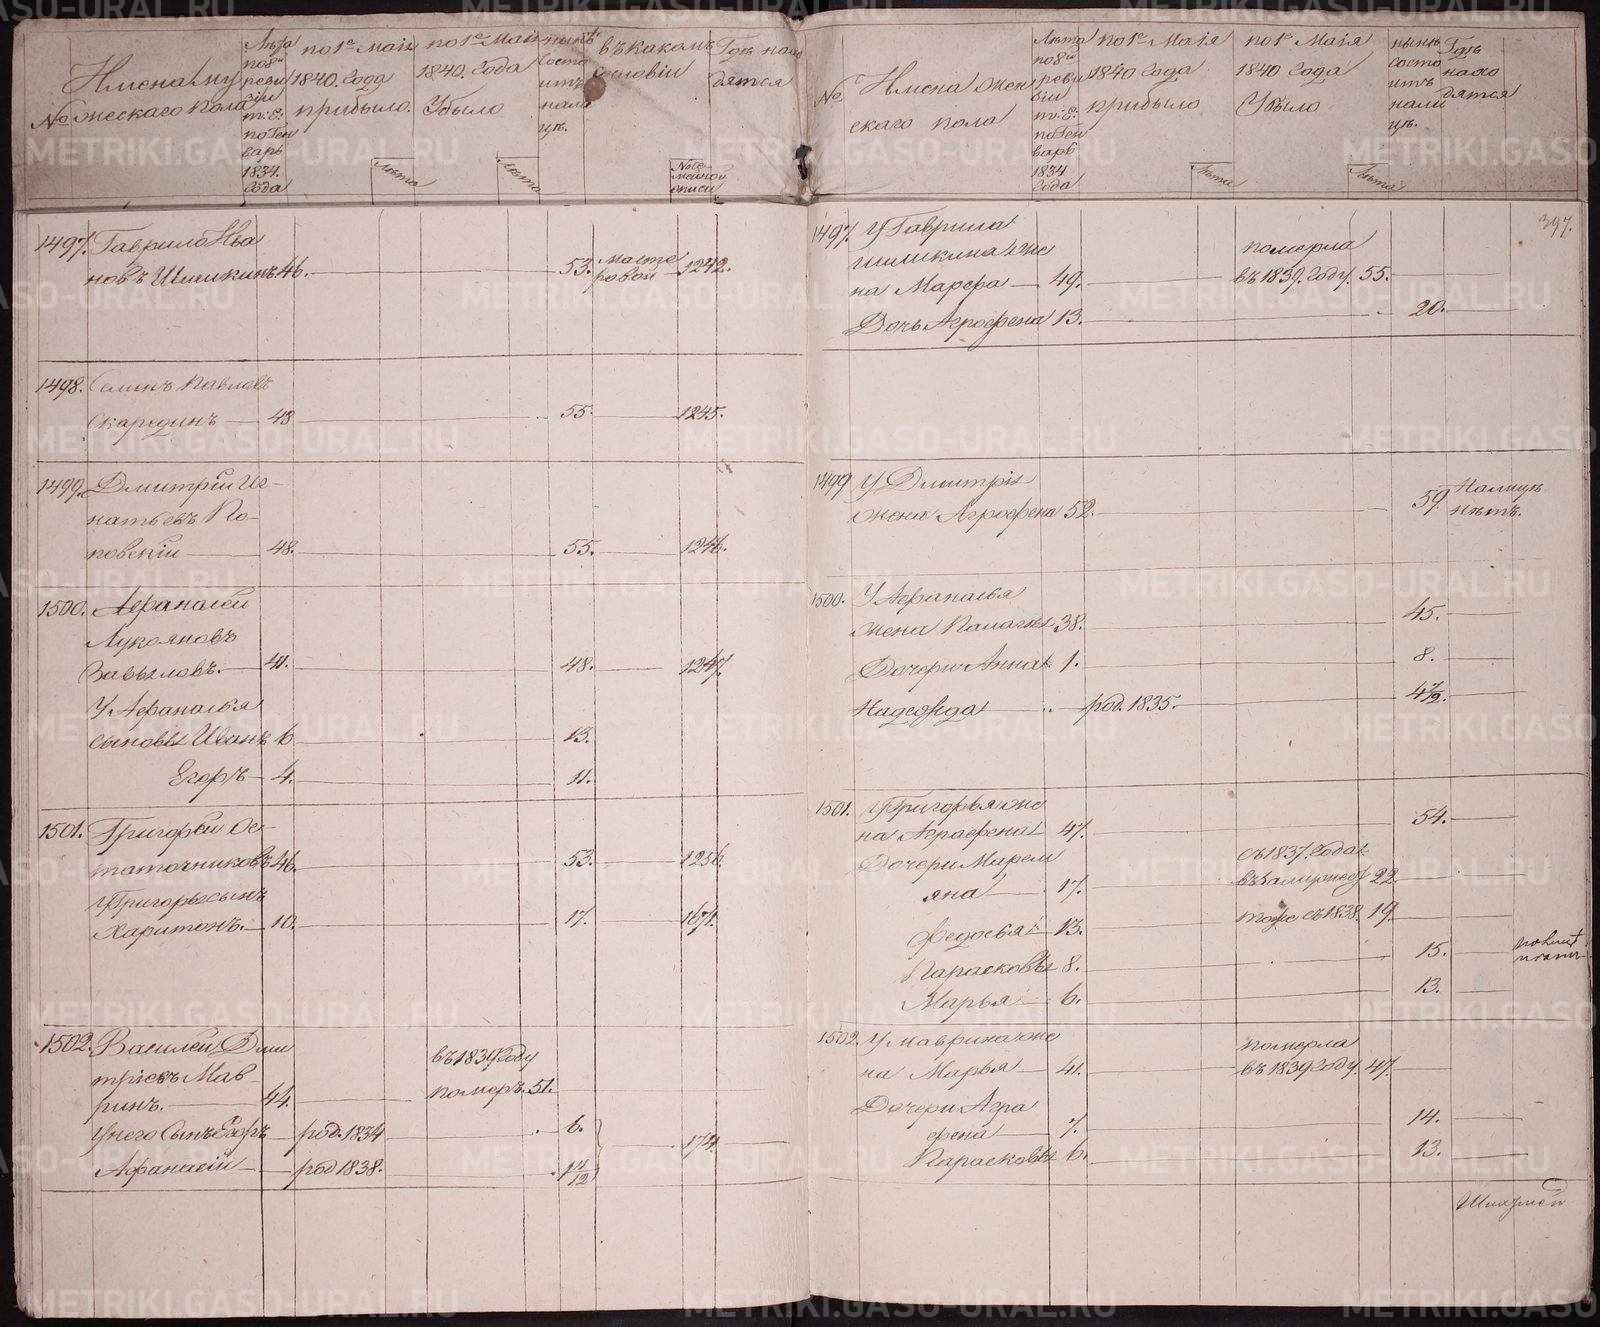 № Имена му
жескаго пола
Лѣта
по 8й
реви
зіи
т. е.
по Ген
варь
1834.
Года
по 1е Маія
1840. Года
прибыло.
Лѣта
по 1е Маія
1840. Года
Убыло
Лѣта
нынѣ
состо
итъ
нали
цѣ.
въ какомъ
сословіи
Гдѣ нахо
дятся
№ се-
мейной
описи
1497. Гаврило Ива
новъ Шишкинъ 46. 53. масте
ровой 1242.
1498. Семенъ Павловъ
Скарединъ 48 55. 1245.
1499. Дмитріи Иг-
натьевъ По-
повскіи 48. 55. 1246.
1500. Афанасеи
Лукояновъ
Завьяловъ. 41. 48. 1247.
У Афанасья
сыновья Иванъ 6 13.
Егоръ 4. 11.
1501. Григореи Ос-
таточниковъ 46. 53. 1256.
У Григорья сынъ
Харитонъ. 10. 17. 1671.
1502. Василеи Дми
тріевъ Мав-
ринъ. 44. въ 1839 Году
померъ. 51.
У него Сынъ Егоръ род. 1834 6.
174.
Афанасіи род 1838. 1 11/12
№ Имена жен
скаго пола
Лѣта
по 8й
реви
зіи
т. е.
по Ген
варь
1834
Года
по 1е Маія
1840 Года
прибыло
Лѣта
по 1е Маія
1840 Года
Убыло
Лѣта
нынѣ
состо
итъ
нали
цѣ.
Гдѣ
нахо
дятся
397.
1497. У Гаврила
Шишкина же
на Марфа 49. померла
въ 1839. Году. 55.
Дочь Агрофена 13. 20.
1499 У Дмитрія
жена Агрофена 52. 59. Налицѣ
нѣтъ.
1500. У Афанасья
жена Палагѣя 38. 45.
Дочери Анна 1. 8.
Надежда род. 1835. 4 7/12.
1501. У Григорья же
на Аграфена 47. 54.
Дочери Марем
яна 17. съ 1837. Года
въ замужест 22
Федосья 13. тоже съ 1838. 19.
Парасковья 8. 15.
Марья 6. 13.
1502. У Маврина же
на Марья 41. померла
въ 1839 Году. 47.
Дочери Агра
фена 7. 14.
Парасковья 6. 13.
METRIKI.GASO-URAL.RU